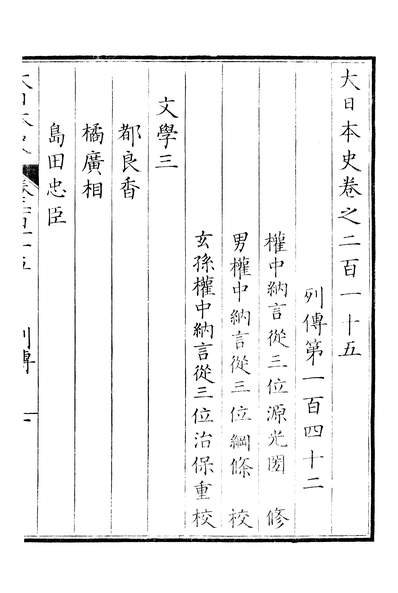 大日本史卷之二百一十五
列傳第一百四十二
權中納言從三位源光圀 修
男權中納言從三位綱條 校
玄孫權中納言從三位治保重校
文學三
都良香
橘廣相
島田忠臣
列傳